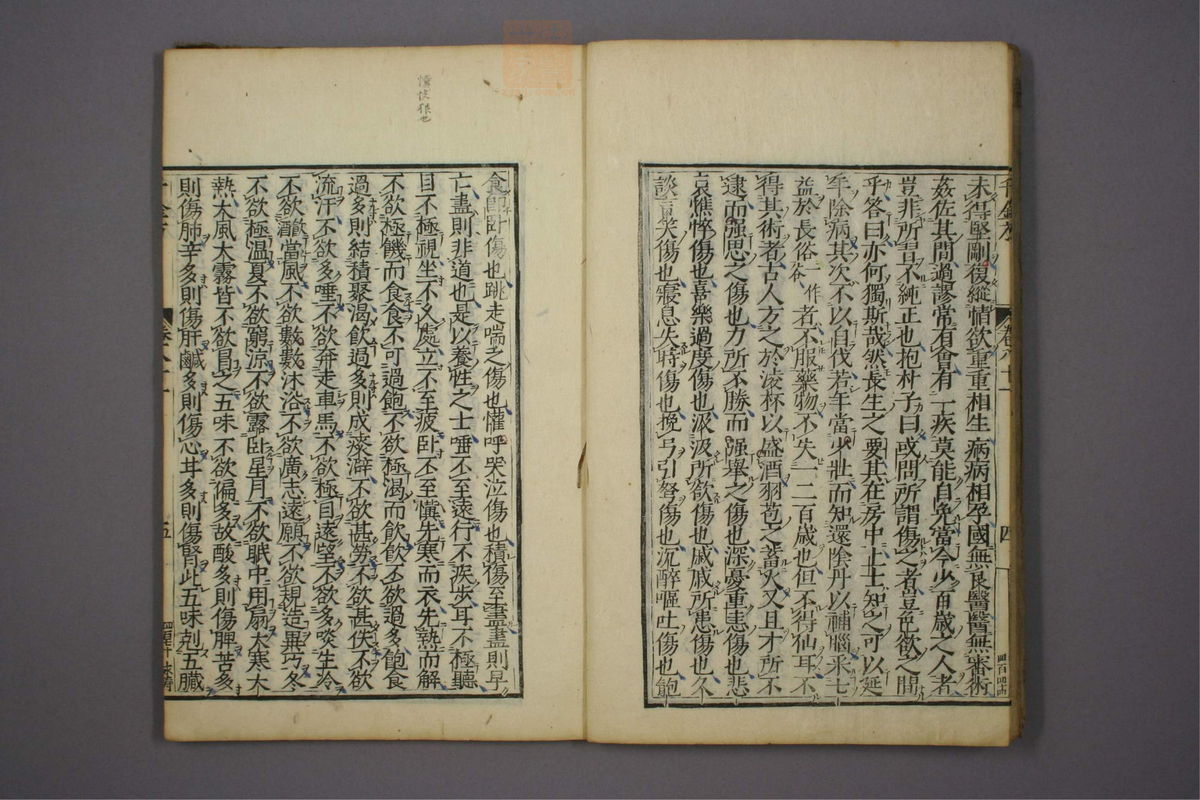 未得堅剛復縱情欲重重相生病病相孕國無良醫醫無審術
姦佐其間過謬常有會有一疾莫能自免當今少百歲之人者
豈非所習不純正也抱朴子曰或問所謂傷之者豈色欲之間
乎答曰亦何獨斯哉然長生之要其在房中上士知之可以延
年除病其次不以自伐若年當少壯而知還陰丹以補腦采七
益於長俗一作谷者不服藥物不失一二百歲也但不得仙耳不
得其術者古人方之於凌杯以盛湯羽苞之蓄火又且才所不
逮而强思之傷也力所不勝而强舉之傷也深憂重恚傷也悲
哀憔悴傷也喜樂過度傷也汲汲所欲傷也戚戚所患傷也久
談言笑傷也寢息失時傷也挽弓引弩傷也沉醉嘔吐傷也飽
食即卧傷也跳走喘乏傷也懽呼哭泣傷也積傷至盡盡則早
亡盡則非道也是以養性之士唾不至遠行不疾步耳不極聽
目不極視坐不久處立不至疲卧不至懻先寒而衣先熱而解
不欲極饑而食食不可過飽不欲極渴而飲飲不欲過多飽食
過多則結積聚渴飲過多則成痰澼不欲甚勞不欲甚佚不欲
流汗不欲多唾不欲奔走車馬不欲極目遠望不欲多啖生冷
不欲飲酒當風不欲數數沐浴不欲廣志遠願不欲規造異巧冬
不欲極温夏不欲窮涼不欲露卧星月不欲眠中用扇大寒大
熱大風大霧皆不欲冒之五味不欲偏多故酸多則傷脾苦多
則傷肺辛多則傷肝鹹多則傷心甘多則傷腎此五味剋五臟
五
四